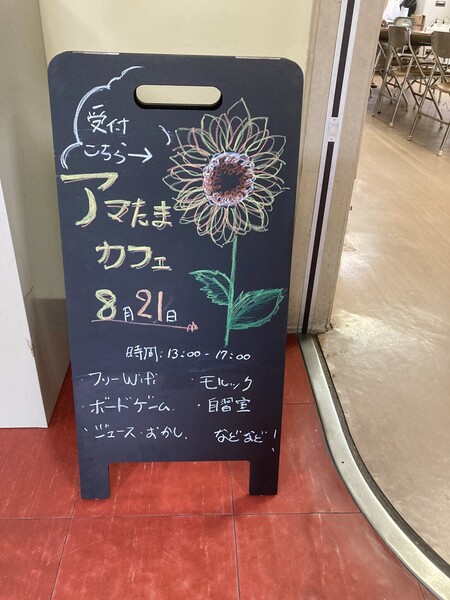 受付
こちら→
アマたま
カフェ
8月21日
時間:13:00-17:00
・フリーWifi ・モルック
・ボードゲーム ・自習室
・ジュース・おかし、 などなど!